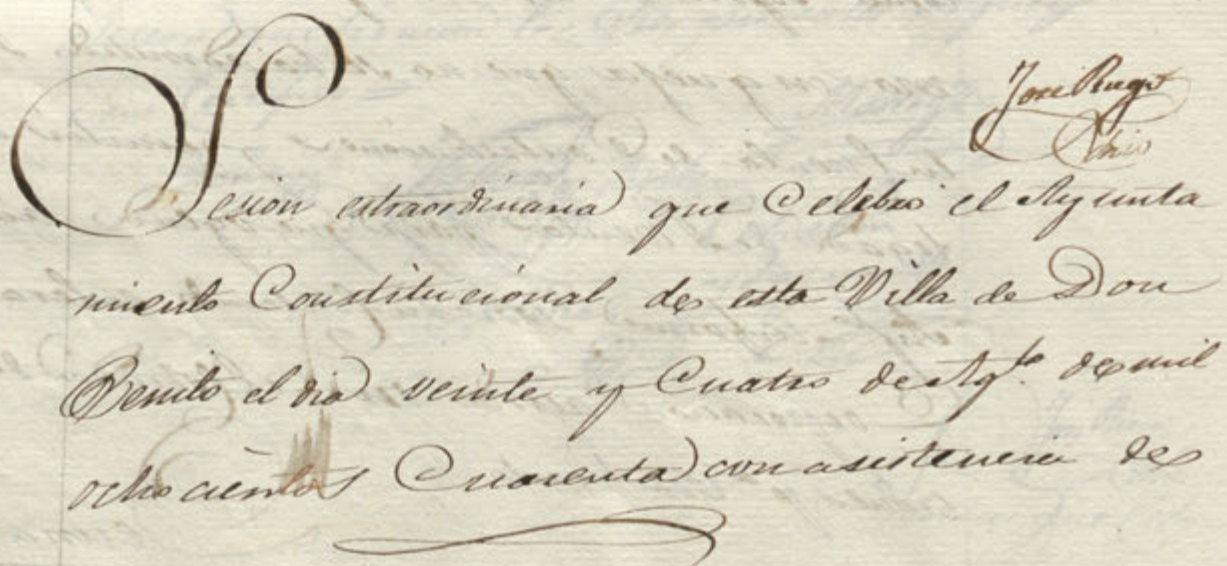 Jose Ruge
Srio
Sesion estraordinaria que Celebro el Ayunta
miento Constitucional de esta Villa de Don
Benito el dia veinte y Cuatro de Agto de mil
ocho cientos Cuarenta con asistencia de